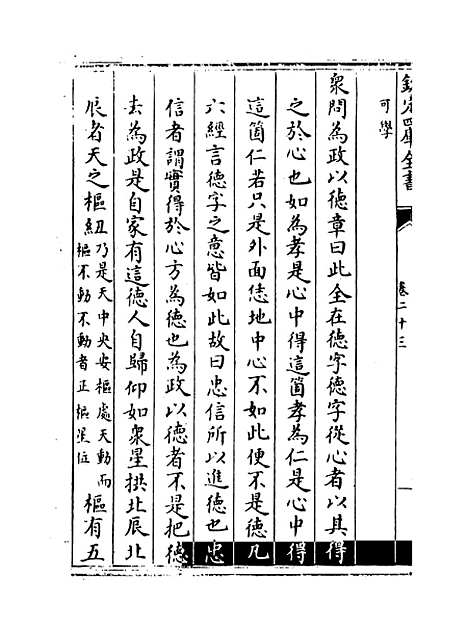 欽定四庫全書
卷二十三
一
可學
衆問為政以德章曰此全在德字德字從心者以其得
之於心也如為孝是心中得這箇孝為仁是心中得
這箇仁若只是外面恁地中心不如此便不是德凡
六經言德字之意皆如此故曰忠信所以進德也忠
信者謂實得於心方為德也為政以德者不是把德
去為政是自家有這德人自歸仰如衆星拱北辰北
辰者天之樞紐乃是天中央安樞處天動而
樞不動不動者正樞星位
樞有五